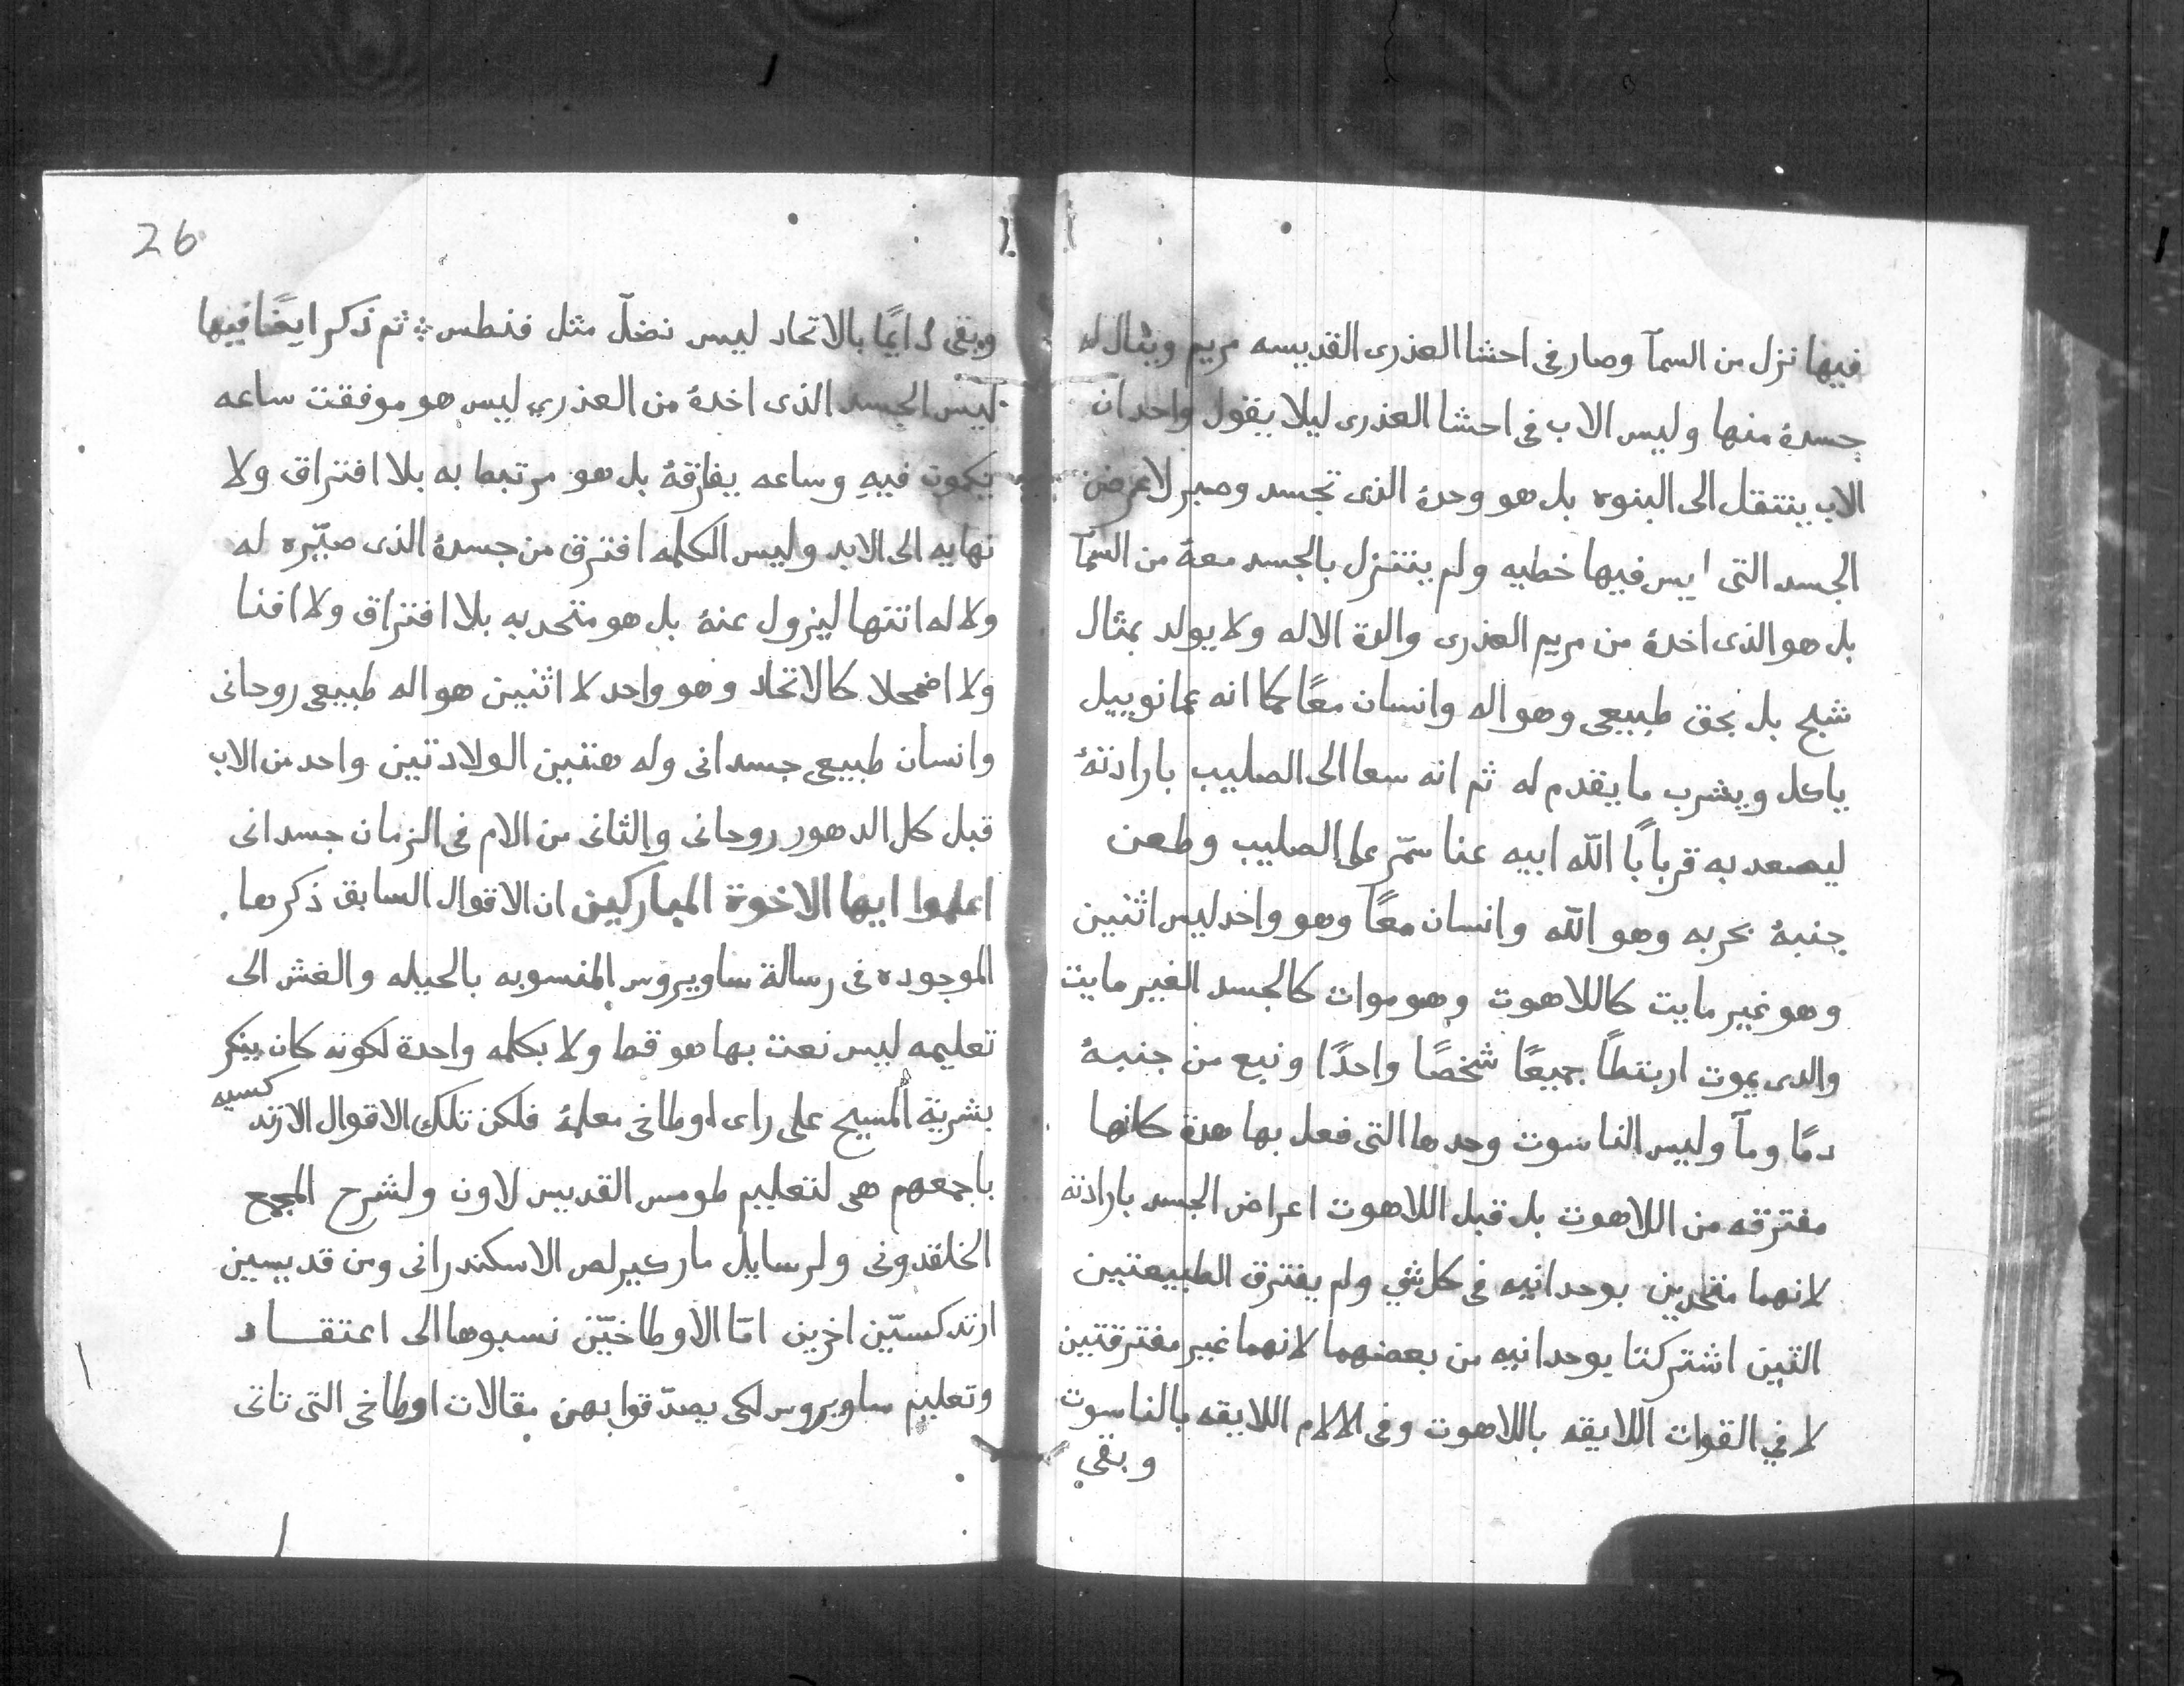 فيها نزل من السمآ وصار فى احشا العذرى القديسه مريم وبثال له
جسدهُ منها وليس الاب فى احشا العذرى ليلا يقول واحد ان
الاب ينتقل الى البنوه بل هو وحدهُ الذى تجسد وصبر لاعرض
الجسد التى ليس فيها خطيه ولم يتنزل بالجسد معهُ من السمآ
بل هو الذى اخدهُ من مريم العذرى والدة الاله ولا يولد بمثال
شبح بل بحق طبيعى وهو اله وانسان معًا كما انه عمانوييل
ياكل ويشرب ما يقدم له ثم انه سعا الى الصليب بارادتهُ
ليصعد به قربابًا الله ابيه عنا سمّر على الصليب وطعن
جنبهُ بحربه وهو الله وانسان معًا وهو واحد ليس اثنين
وهو غير مايت كاللاهوت وهو موات كالجسد الغير مايت
والدى يموت اربتطًا جميعًا شخصًا واحدًا ونبع من جنبهُ
دمًا ومآ وليس الناسوت وحدها التى فعل بها هدة كانها
مفترقه من اللاهوت بل قبل اللاهوت اعراض الجسد بارادته
لانهما متحدين بوحدانيه فى كل شي ولم يفترق الطبيعتين
التين اشتركتا بوحدانيه من بعضهما لانهما غير مفترقتين
لا في القوات اللايقه باللاهوت وفى الالام اللايقه بالناسوت
وبقي
26
وبقى دايمًا بالاتحاد ليس نضلّ مثل فنطس ثم ذكر ايضًا فيها
ليس الجسد الذى اخدهُ من العذري ليس هو موفقت ساعه
يكون فيهِ وساعه يفارقهُ بل هو مرتبط به بلا افتراق ولا
نهايه الى الابد وليس الكلمه افترق من جسدهُ الذى صيّره له
ولا له انتها ليزول عنهُ بل هو متحد به بلا افتراق ولا افنا
ولا اضمحلا كالاتحاد وهو واحد لا اثنين هو اله طبيعى روحانى
وانسان طبيعى جسدانى وله هتين الولادتين واحد من الاب
قبل كل الدهور روحانى والثانى من الام فى الزمان جسدانى
اعلموا ايها الاخوة المباركين ان الاقوال السابق ذكرها
الموجوده فى رسالة ساويروس المنسوبه بالحيله والغش الى
تعليمه ليس نعت بها هو قط ولا بكلمه واحدة لكونه كان ينكر
بشرية المسيح على راى اوطاخى معلمهُ فلكن تلك الاقوال الارتدكسيه
باجمعهم هى لتعليم طومس القديس لاون ولشرح المجمع
الخلقدونى ولرسايل مار كيرلص الاسكندرانى ومن قديسين
ارتدكسيّين اخرين امّا الاوطاخيّن نسبوها الى اعتقاد
وتعليم ساويروس لكى يصدّقوا بهن مقالات اوطاخى التى تاتى